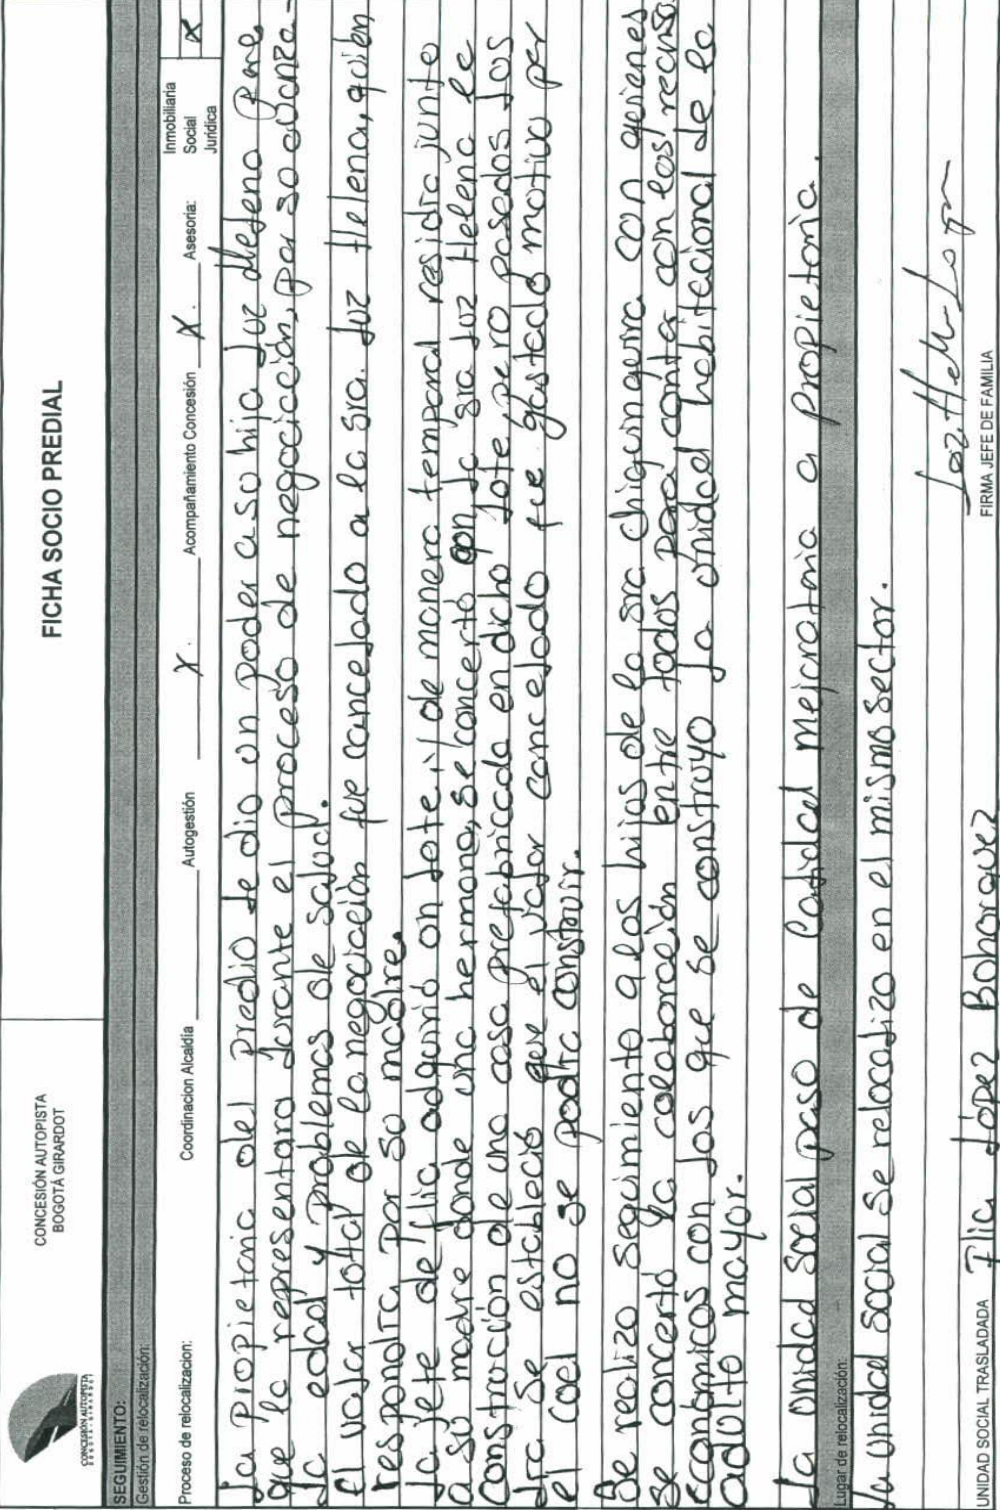 CONCESIÓN AUTOPISTA
BOGOTÁ - GIRARDOT
CONCESIÓN AUTOPISTA
BOGOTÁ GIRARDOT
FICHA SOCIO PREDIAL
SEGUIMIENTO:
Gestión de relocalización:
Proceso de relocalizacion: Coordinacion Alcaldía Autogestión X. Acompañamiento Concesión X. Asesoria: Inmobiliaria
Social
Jurídica X
La Propietaria del predio le dio un poder a su hija Luz para
que la representara durante el proceso de negociación, por su avanza-
da edad y problemas de salud.
El valor total de la negociación fue cancelado a la sra. Luz Helena, quien
respondia por su madre.
La jefe de flia adquirió un lote y de manera temporal residia junto
a su madre donde una hermana, se concerto con la sra Luz Helena la
Construcción de una casa prefabricada en dicho lote, pero pasados los
dias se estableció que el valor cancelado fue gastado motivo por
el cual no se podia construir.
Se realizo seguimiento a los hijos de la sra chiquinquira con quienes
se concerto la colaboración entre todos para contar con los recursos
económicos con los que se construyo la unidad habitacional de la
adulto mayor.
La unidad social paso de Calidad mejorataria a propietaria.
Lugar de relocalización:
La unidad social se relocalizo en el mismo sector.
UNIDAD SOCIAL TRASLADADA Flia López Bohorquez
Luz Helena Lopez
FIRMA JEFE DE FAMILIA